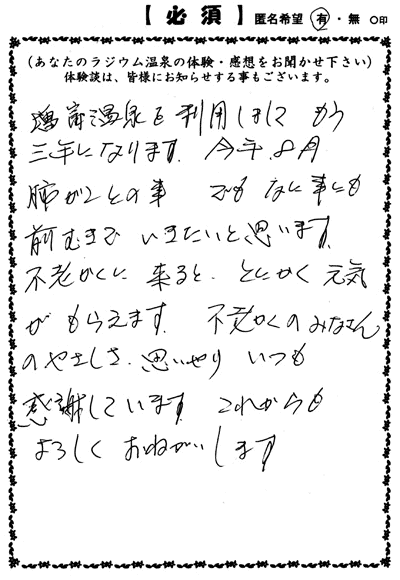 【必須】 匿名希望 有・無 ○印
(あなたのラジウム温泉の体験・感想をお聞かせ下さい)
体験談は、皆様にお知らせする事もございます。
温泉を利用しまして から
三年になります. 今年8月
肺がんとの事 でも なに事にも
前むきで いきたいと思います.
不老かくに 来ると、とにかく 元気
が もらえます. 不老かくのみなさん
のやさしさ. 思いやり いつも
感謝しています これからも
よろしく おねがいします